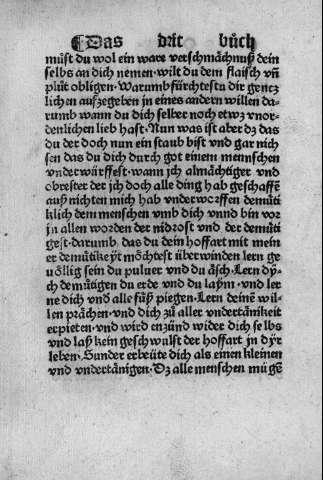 ¶ Das drit bůch
můst du wol ein ware verschmächnuß dein
selbs an dich nemen · wilt du dem flaisch vñ
plůt obligen · Warumb fürchtestu dir gencz
lichen aufzegeben in eines andern willen da-
rumb wann du dich selber noch etwz vnor-
denlichen lieb hast · Nun was ist aber dz das
du der doch nun ein staub bist vnd gar nich
sen das du dich durch got einem mennschen
vnderwürffest · wann jch almächtiger vnd
obrester der jch doch alle ding hab geschaffē
auß nichten mich hab vnderworffen demüti
klich dem menschen vmb dich vnnd bin vor
jn allen worden der nidrost vnd der demüti
gest · darumb das du dein hoffart mit mein
er demütikeyt möchtest überwinden lern ge
uöllig sein du puluer vnd du äsch · Lern dÿ-
ch demütigen du erde vnd du laym · vnd ler
ne dich vnd alle füß piegen · Lern deinē wil-
len prächen · vnd dich zů aller vndertänikeit
erpieten · vnd wird enzünd wider dich selbs
vnd laß kein geschwulst der hoffart jn dÿr
leben · Sunder erbeüte dich als einen kleinen
vnd vndertänigen · Dz alle menschen mügē